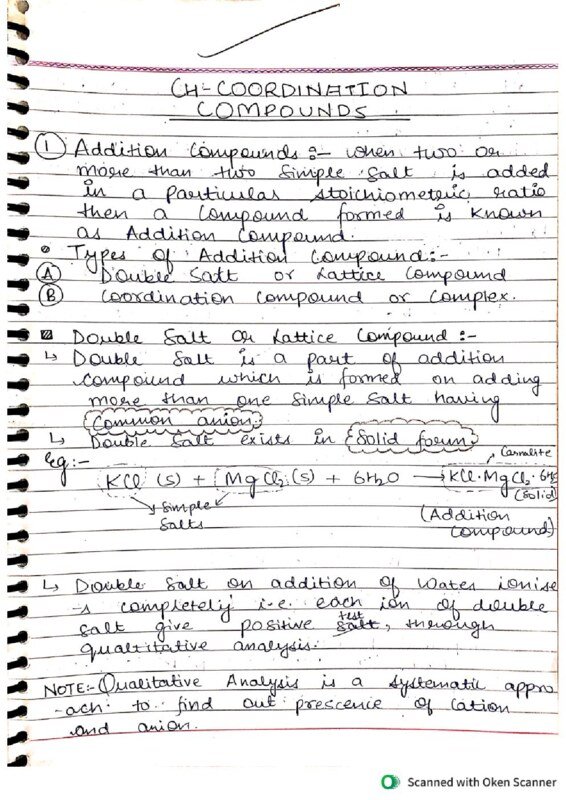 CH-COORDINATION
COMPOUNDS
1 Addition Compounds :- when two or
more than two simple salt is added
in a particular stoichiometric ratio
then a compound formed is known
as Addition Compound.
• Types of Addition Compound:-
A Double Salt or Lattice Compound
B Coordination Compound or Complex.
Double Salt or Lattice Compound :-
↳ Double Salt is a part of addition
compound which is formed on adding
more than one simple salt having
Common anion.
↳ Double Salt exists in Solid forum.
Eg:-
Carnalite
KCl (s) + MgCl2 (s) + 6H2O → KCl·MgCl2·6H2O
(Solid)
Simple
Salts
(Addition
Compound)
↳ Double Salt on addition of water ionise
-s completely i.e. each ion of double
test
salt give positive salt, through
qualtitative analysis.
NOTE:- Qualitative Analysis is a systematic appro
-ach to find out prescence of cation
and anion.
Scanned with Oken Scanner